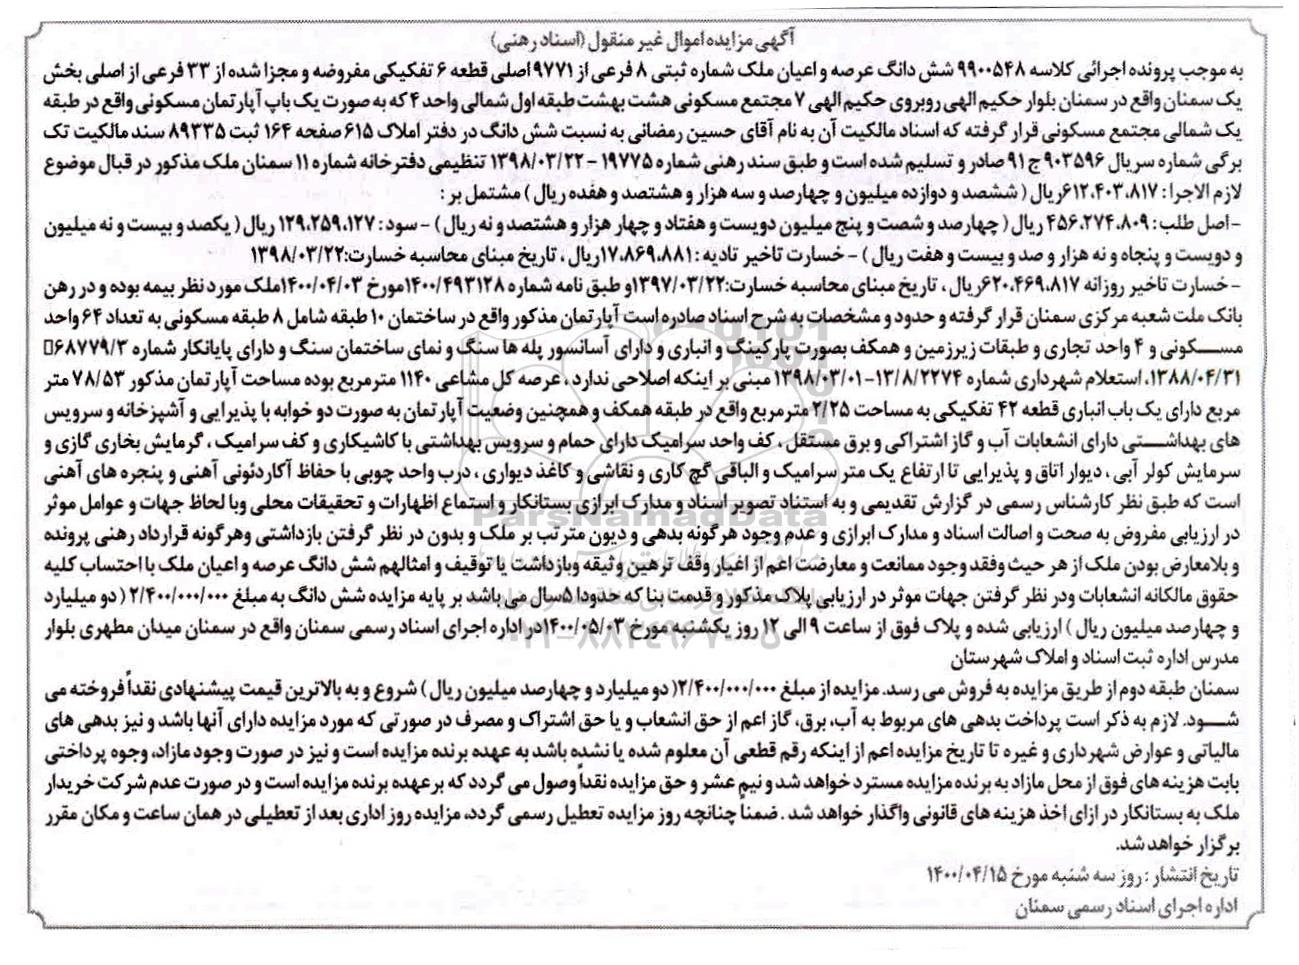 آگهی مزایده اموال غیر منقول (اسناد رهنی)
به موجب پرونده اجرائی کلاسه ۹۹۰۰۵۴۸ شش دانگ عرصه و اعیان ملک شماره ثبتی ۸ فرعی از ۹۷۷۱ اصلی قطعه ۶ تفکیکی مفروضه و مجزا شده از ۳۳ فرعی از اصلی بخش
یک سمنان واقع در سمنان بلوار حکیم الهی روبروی حکیم الهی ۷ مجتمع مسکونی هشت بهشت طبقه اول شمالی واحد ۴ که به صورت یک باپ آپارتمان مسکونی واقع در طبقه
یک شمالی مجتمع مسکونی قرار گرفته که اسناد مالکیت آن به نام آقای حسین رمضانی به نسبت شش دانگ در دفتر املاک ۶۱۵ صفحه ۱۶۴ ثبت ۸۹۳۳۵ سند مالکیت تک
برگی شماره سریال ۹۰۳۵۹۶ ج ۹۱ صادر و تسلیم شده است و طبق سند رهنی شماره ۱۹۷۷۵ - ۱۳۹۸/۰۳/۲۲ تنظیمی دفترخانه شماره ۱۱ سمنان ملک مذکور در قبال موضوع
لازم الاجرا : ۶۱۲،۴۰۳،۸۱۷ریال ( ششصد و دوازده میلیون و چهارصد و سه هزار و هشتصد و هفده ریال ) مشتمل بر :
-اصل طلب : ۴۵۶،۲۷۴،۸۰۹ ریال ( چهارصد و شصت و پنج میلیون دویست و هفتاد و چهار هزار و هشتصد و نه ریال ) - سود : ۱۲۹،۲۵۹،۱۲۷ ریال ( یکصد و بیست و نه میلیون
و دویست و پنجاه و نه هزار و صد و بیست و هفت ریال ) - خسارت تاخیر تادیه : ۱۷،۸۶۹،۸۸۱ریال ، تاریخ مبنای محاسبه خسارت:۱۳۹۸/۰۳/۲۲
-خسارت تاخیر روزانه ۶۲۰،۴۶۹،۸۱۷ریال ، تاریخ مبنای محاسبه خسارت:۱۳۹۷/۰۳/۲۲و طبق نامه شماره ۱۴۰۰/۴۹۳۱۲۸مورخ ۱۴۰۰/۰۴/۰۳ملک مورد نظر بیمه بوده و در رهن
بانک ملت شعبه مرکزی سمنان قرار گرفته و حدود و مشخصات به شرح اسناد صادره است آپارتمان مذکور واقع در ساختمان ۱۰ طبقه شامل ۸ طبقه مسکونی به تعداد ۶۴ واحد
مسکونی و ۴ واحد تجاری و طبقات زیرزمین و همکف بصورت پارکینگ و انباری و دارای آسانسور پله ها سنگ و نمای ساختمان سنگ و دارای پایانکار شماره ۶۸۷۷۹/۳
۱۳۸۸/۰۴/۳۱، استعلام شهرداری شماره ۱۳/۸/۲۲۷۴-۱۳۹۸/۰۳/۰۱ مبنی بر اینکه اصلاحی ندارد ، عرصه کل مشاعی ۱۱۴۰ مترمربع بوده مساحت آپارتمان مذکور ۷۸/۵۳ متر
مربع دارای یک باب انباری قطعه ۴۲ تفکیکی به مساحت ۲/۲۵ مترمربع واقع در طبقه همکف و همچنین وضعیت آپارتمان به صورت دو خوابه با پذیرایی و آشپزخانه و سرویس
های بهداشتی دارای انشعابات آب و گاز اشتراکی و برق مستقل ، کف واحد سرامیک دارای حمام و سرویس بهداشتی با کاشیکاری و کف سرامیک ، گرمایش بخاری گازی و
سرمایش کولر آبی ، دیوار اتاق و پذیرایی تا ارتفاع یک متر سرامیک و الباقی گچ کاری و نقاشی و کاغذ دیواری ، درب واحد چوبی با حفاظ آکاردئونی آهنی و پنجره های آهنی
است که طبق نظر کارشناس رسمی در گزارش تقدیمی و به استناد تصویر اسناد و مدارک ابرازی بستانکار و استماع اظهارات و تحقیقات محلی وبا لحاظ جهات و عوامل موثر
در ارزیابی مفروض به صحت و اصالت اسناد و مدارک ابرازی و عدم وجود هرگونه بدهی و دیون مترتب بر ملک و بدون در نظر گرفتن بازداشتی وهرگونه قرارداد رهنی پرونده
و بلامعارض بودن ملک از هر حیث وفقد وجود ممانعت و معارضت اعم از اغیار وقف ترهین وثیقه وبازداشت یا توقیف و امثالهم شش دانگ عرصه و اعیان ملک با احتساب کلیه
حقوق مالکانه انشعابات ودر نظر گرفتن جهات موثر در ارزیابی پلاک مذکور و قدمت بنا که حدودا ۵سال می باشد بر پایه مزایده شش دانگ به مبلغ ۲/۴۰۰/۰۰۰/۰۰۰ ( دو میلیارد
و چهارصد میلیون ریال ) ارزیابی شده و پلاک فوق از ساعت ۹ الی ۱۲ روز یکشنبه مورخ ۱۴۰۰/۰۵/۰۳در اداره اجرای اسناد رسمی سمنان واقع در سمنان میدان مطهری بلوار
مدرس اداره ثبت اسناد و املاک شهرستان
سمنان طبقه دوم از طریق مزایده به فروش می رسد. مزایده از مبلغ ۲/۴۰۰/۰۰۰/۰۰۰( دو میلیارد و چهارصد میلیون ریال ) شروع و به بالاترین قیمت پیشنهادی نقداً فروخته می
شود. لازم به ذکر است پرداخت بدهی های مربوط به آب، برق، گاز اعم از حق انشعاب و یا حق اشتراک و مصرف در صورتی که مورد مزایده دارای آنها باشد و نیز بدهی های
مالیاتی و عوارض شهرداری و غیره تا تاریخ مزایده اعم از اینکه رقم قطعی آن معلوم شده یا نشده باشد به عهده برنده مزایده است و نیز در صورت وجود مازاد، وجوه پرداختی
بابت هزینه های فوق از محل مازاد به برنده مزایده مسترد خواهد شد و نیم عشر و حق مزایده نقداً وصول می گردد که بر عهده برنده مزایده است و در صورت عدم شرکت خریدار
ملک به بستانکار در ازای اخذ هزینه های قانونی واگذار خواهد شد . ضمناً چنانچه روز مزایده تعطیل رسمی گردد، مزایده روز اداری بعد از تعطیلی در همان ساعت و مکان مقرر
برگزار خواهد شد.
تاریخ انتشار : روز سه شنبه مورخ ۱۴۰۰/۰۴/۱۵
اداره اجرای اسناد رسمی سمنان
ParsNamadData